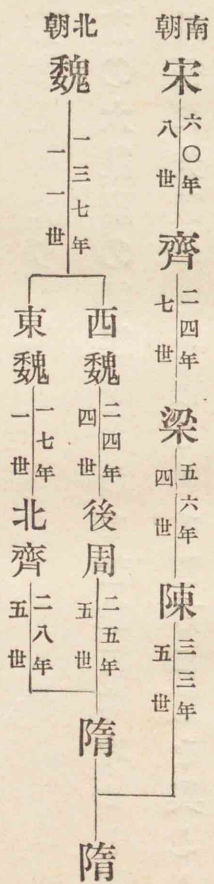 南朝
宋
六〇年
八世
齊
二四年
七世
梁
五六年
四世
陳
三三年
五世
北朝
魏
一三七年
一一世
西魏
二四年
四世
後周
二五年
五世
東魏
一七年
一世
北齊
二八年
五世
隋
隋